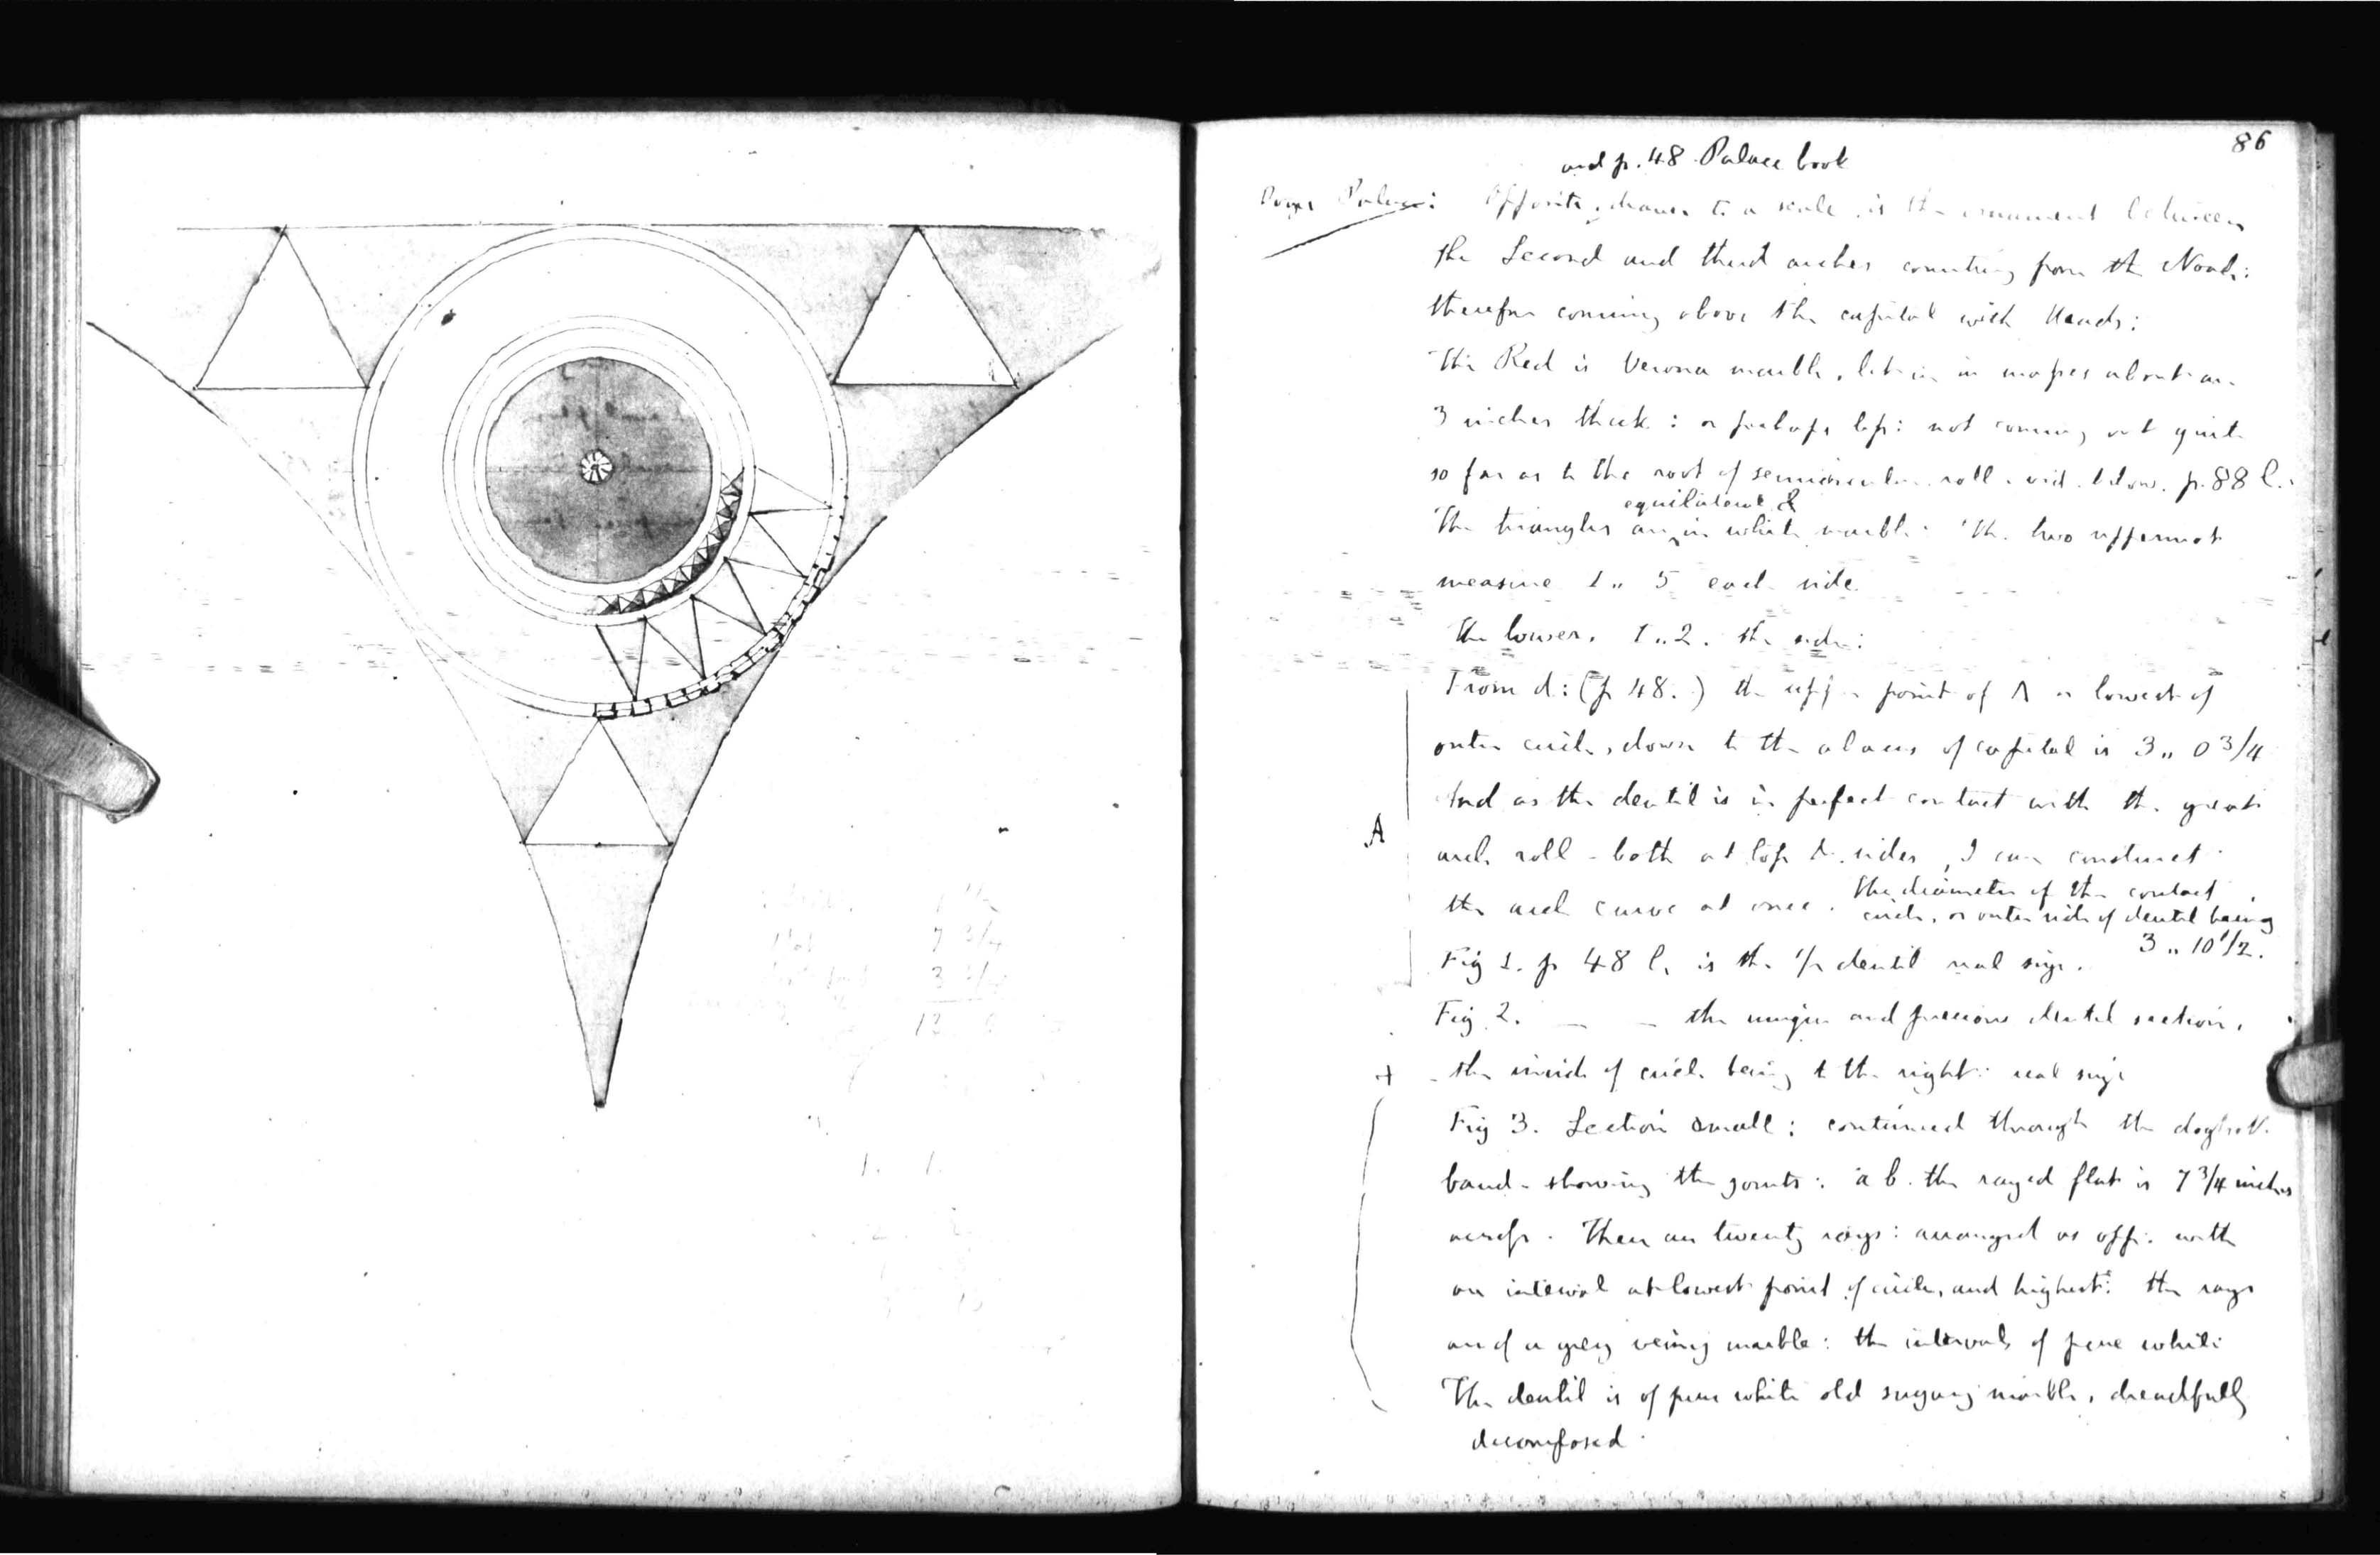 86
and p. 48 Palace book
Doges Palace: Opposite, drawn to a scale, is the ornament between
the Second and third arches counting from the North:
therefore coming above the capital with Heads:
The Red is Verona marble, let in in masses about
3 inches thick: or perhaps less: not coming out quite
so far as to the root of semicircular roll. vid. below. p. 88 l.
equilateral &
The triangles are in white marble: The two uppermost
measure 1 .. 5 each side
The lower. 1 .. 2. the side:
From d: (p 48.) the upper point of Λ or lowest of
outer circle, down to the abacus of capital is 3 .. 0 3/4
A
And as the dentil is in perfect contact with the great
arch roll - both at top & sides, I can construct
the arch curve at once. the diameter of the contact
circle, or outer side of dentil being
3 .. 10 1/2.
Fig 1. p 48 l. is the dentil real size.
Fig 2. _ _ the and precious dentil section,
+ the inside of circle being to the right: real size
Fig 3. Section small: continued through the dogtooth
band - showing the joints: a b. the rayed flat is 7 3/4 inches
across. There are twenty rays: arranged as opp. with
an interval at lowest point of circle, and highest: the rays
are of a grey veiny marble: the intervals of pure white
The dentil is of pure white old sugary marble, dreadfully
decomposed.
7 3/4
1. 1.